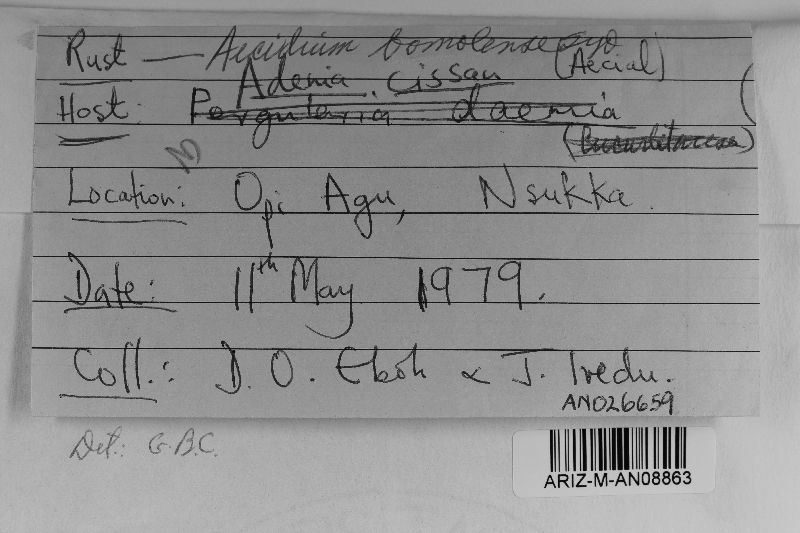 Rust — Aecidium bomolense syd.
(Aecial)
Adenia cissan
Host: Pergularia daemia
(Cucurbitaceae)
Location: Opi Agu, Nsukka.
Date: 11th May 1979.
Coll.: D. O. Eboh & J. Iredu.
AN026659
Det.: G.B.C.
ARIZ-M-AN08863